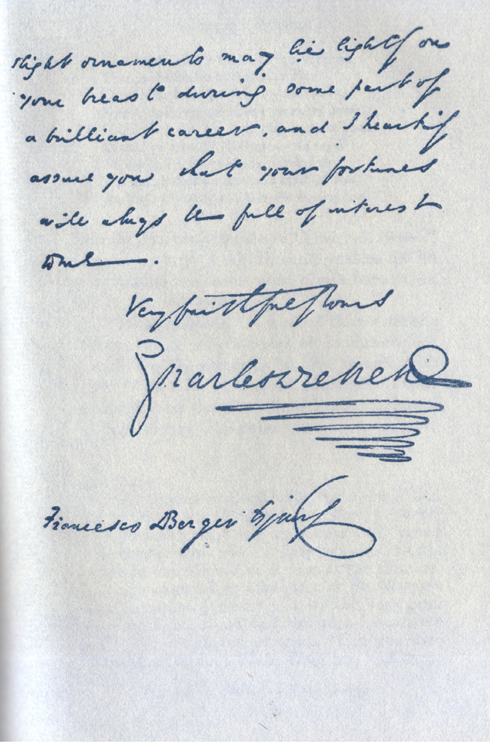 slight ornaments may lie lightly on
your breast during some part of
a brilliant career, and I heartily
assure you that your fortunes
will always be full of interest
to me.
Very faithfully Yours
Charles Dickens
Francesco Berger Esquire